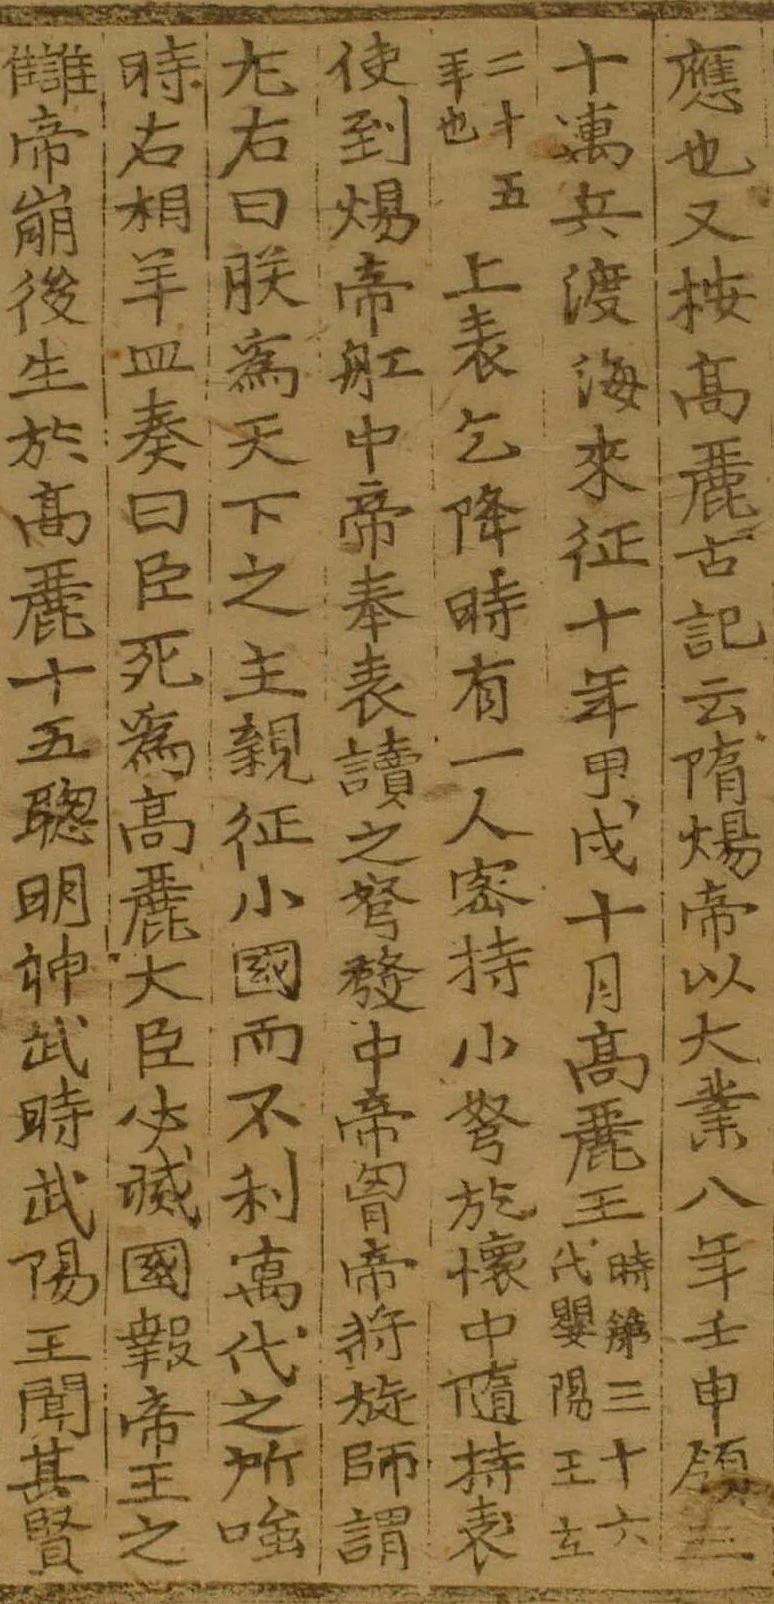 應也又按高麗古記云隋煬帝以大業八年壬申領三
十萬兵渡海來征十年甲戌十月高麗王時第三十六代嬰陽王立
二十五年也上表乞降時有一人密持小弩於懷中隨持表
使到煬帝舡中帝奉表讀之弩發中帝胷帝將旋師謂
左右曰朕為天下之主親征小國而不利萬代之所嗤
時右相羊皿奏曰臣死為高麗大臣必滅國報帝王之
讎帝崩後生於高麗十五聰明神武時武陽王聞其賢